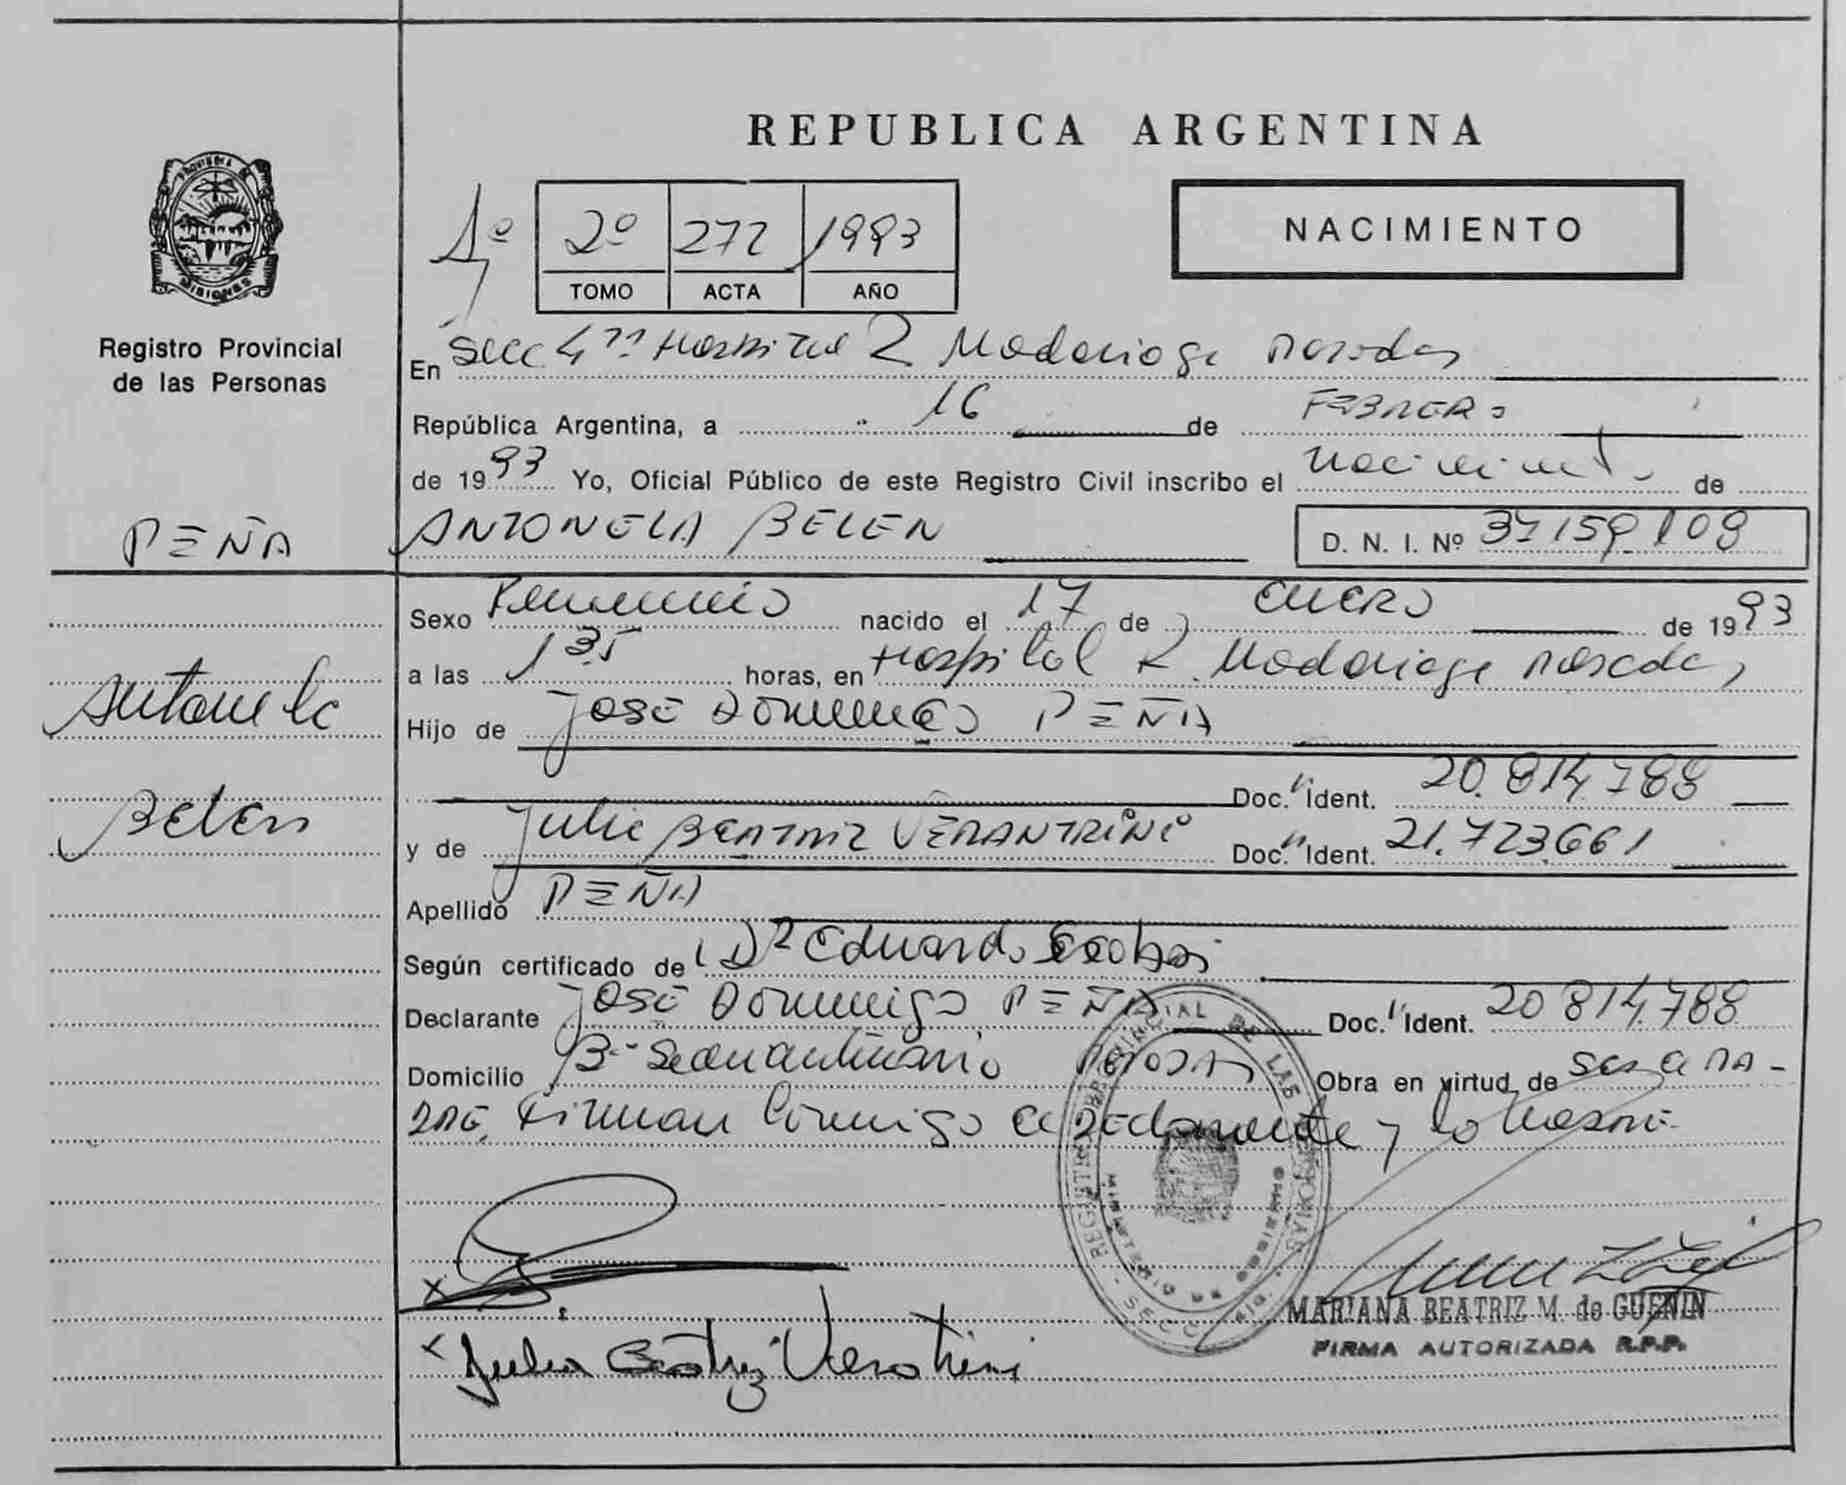 REPUBLICA ARGENTINA
PROVINCIA DE MISIONES
Registro Provincial
de las Personas
1º 2º 272 1993
TOMO ACTA AÑO
NACIMIENTO
En Secc 4ta Hospital R Madariaga Posadas
República Argentina, a 16 de FEBRERO
de 1993 Yo, Oficial Público de este Registro Civil inscribo el nacimiento de
PEÑA ANTONELA BELEN D. N. I. Nº 37159109
Sexo Femenino nacido el 17 de enero de 1993
a las 1 35 horas, en Hospital R. Madariaga Posadas
Antonela
Hijo de JOSE DOMINGO PEÑA
Doc. Ident. 20.814.788
Belen
y de Julia BEATRIZ VERANTRINI Doc. Ident. 21.723.661
Apellido PEÑA
Según certificado de Dr Eduardo Escobar
Declarante JOSÉ DOMINGO PEÑA Doc. Ident. 20 814.788
Domicilio Posadas Obra en virtud de Ser el PA-
DRE. Firman conmigo el Declarante y la MADRE
REGISTRO PROVINCIAL DE LAS PERSONAS
SECC.
Julia Beatriz
MARIANA BEATRIZ M. de GUENIN
FIRMA AUTORIZADA R.P.P.